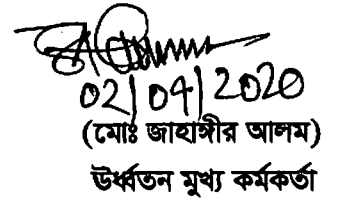 02/04/2020
(মোঃ জাহাঙ্গীর আলম)
উর্ধ্বতন মুখ্য কর্মকর্তা